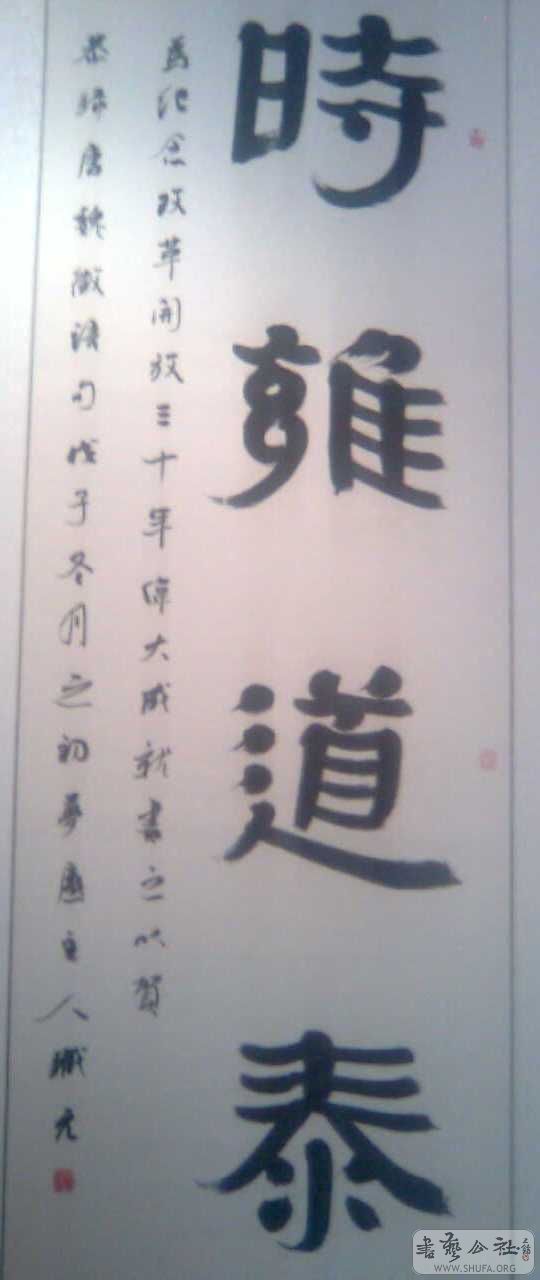 時雍道泰
為纪念改革開放三十年偉大成就書之以賀
恭録唐魏徵诗句戊子冬月之初夢廬主人
書藝公社
WWW.SHUFA.ORG